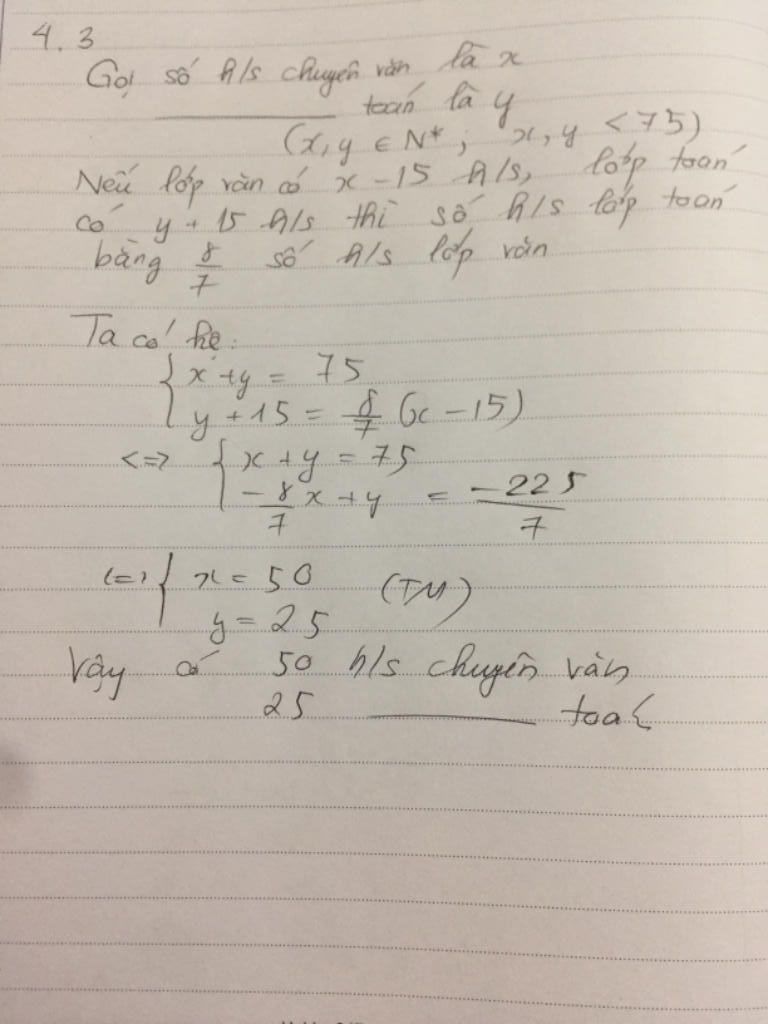 4.3
Gọi số h/s chuyên văn là x
________ toán là y
(x, y ∈ N*; x, y < 75)
Nếu lớp văn có x - 15 h/s, lớp toán
có y + 15 h/s thì số h/s lớp toán
bằng 8/7 số h/s lớp văn
Ta có hệ:
{ x + y = 75
y + 15 = 8/7 (x - 15)
<=> { x + y = 75
-8/7 x + y = -225/7
<=> { x = 50 (TM)
y = 25
Vậy có 50 h/s chuyên văn
25 ________ toán